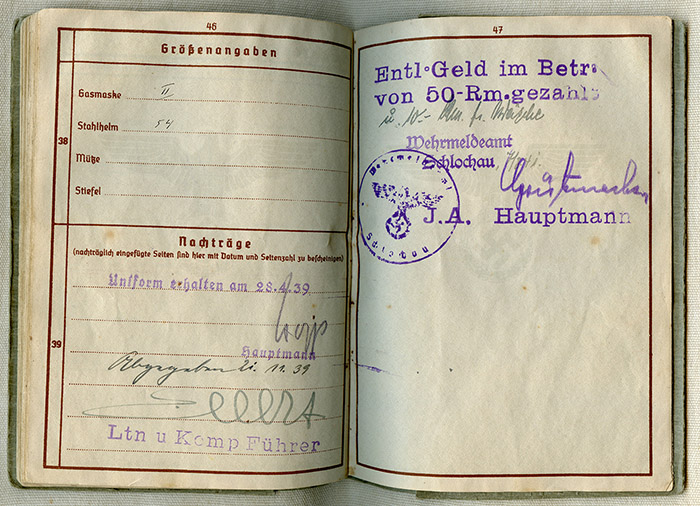 46
Größenangaben
Gasmaske II
38
Stahlhelm 54
Mütze
Stiefel
Nachträge
(nachträglich eingefügte Seiten sind hier mit Datum und Seitenzahl zu bescheinigen)
Uniform erhalten am 28.4.39
Hauptmann
39
Abgegeben 21. 11. 39
Ltn u Komp Führer
47
Entl.Geld im Betra
von 50-Rm.gezahlt
u. 10.- Rm. fr. Wäsche
Wehrmeldeamt
Schlochau,
J.A. Hauptmann